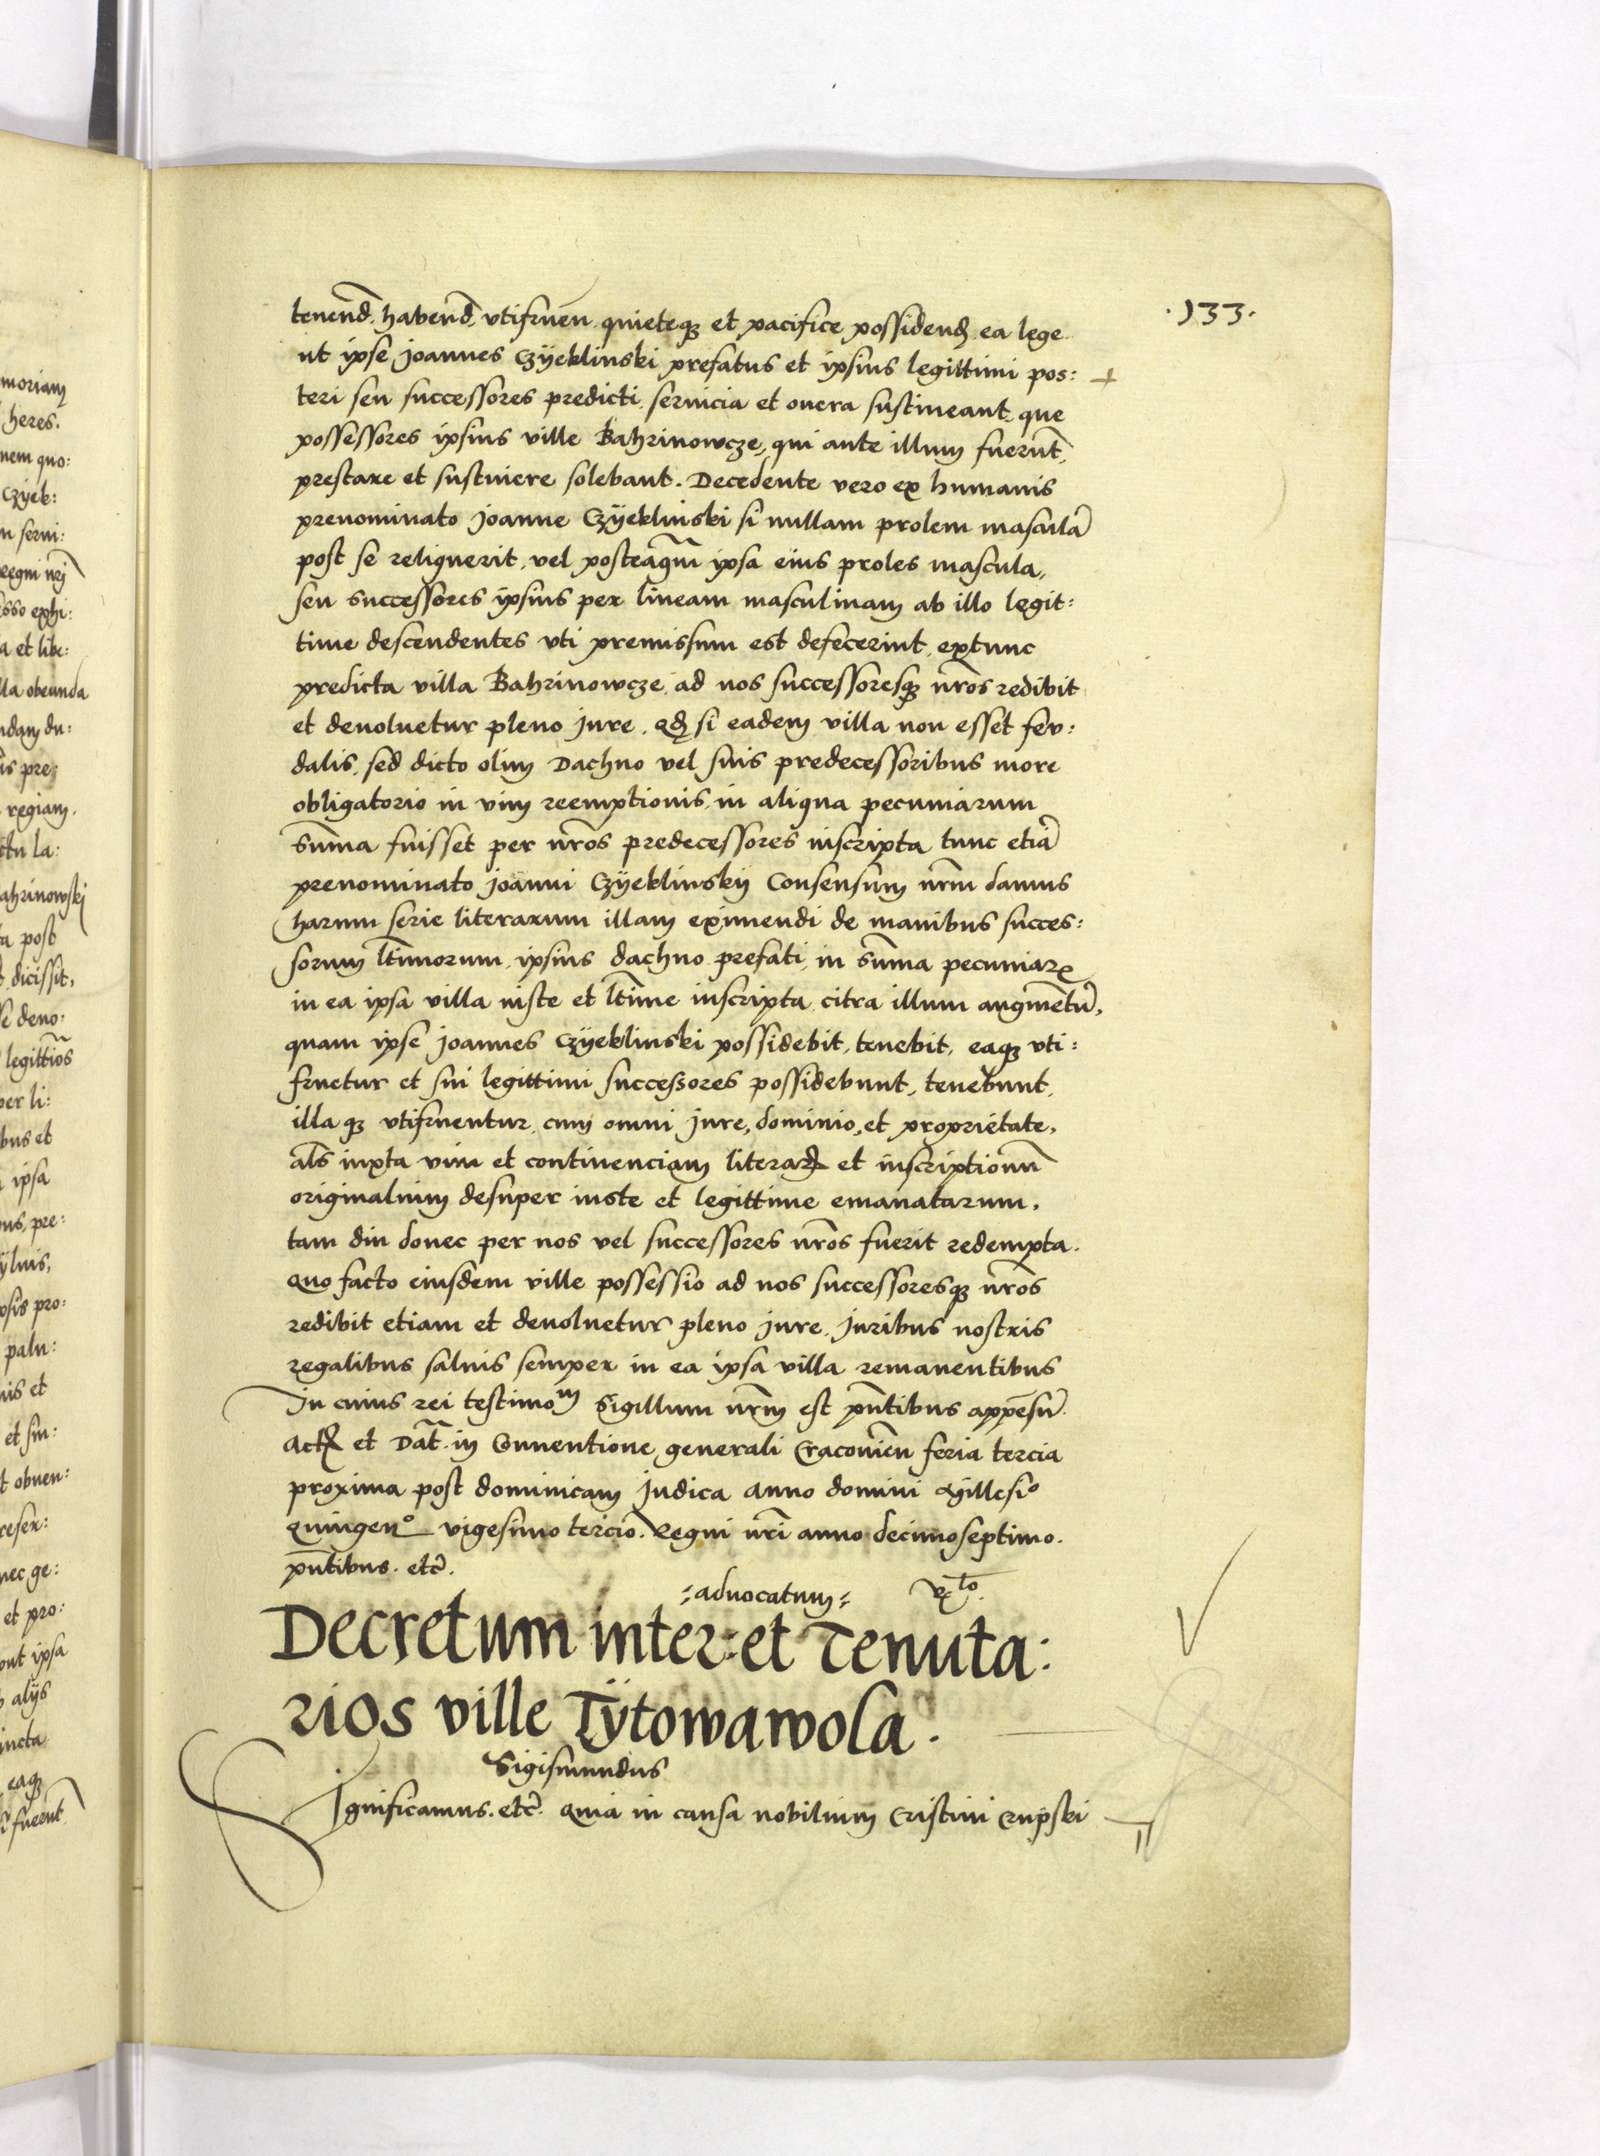 ·133·
tenend̃. habend̃. vtifruen̄. quieteqȝ et pacifice possidenđ. ea lege
ut ipse joannes Czÿeklinski prefatus et ipsius legittimi pos: +
teri seu successores predicti seruicia et onera sustineant que
possessores ipsius ville Bahrinowcze, qui ante illum fuerūt,
prestare et sustinere solebant. Decedente vero ex humanis
prenominato joanne Czÿeklinski si nullam prolem masculā
post se reliquerit, vel posteaqm̄ ipsa eius proles mascula,
seu successores ipsius per lineam masculinam ab illo legit:
time descendentes vti premissum est defecerint, extunc
predicta villa Bahrinowcze ad nos successoresqȝ nr̄os redibit
et deuoluetur pleno jure. qđ si eadem villa non esset feu:
dalis, sed dicto olim Dachno vel suis predecessoribus more
obligatorio in vim reemptionis in aliqua pecuniarum
sum̄a fuisset per nr̄os predecessores inscripta tunc etiā
prenominato joanni Czÿeklinskij Consensum nr̄m damus
harum serie literarum illam eximendi de manibus succes:
sorum lt̄imorum ipsius dachno prefati in sum̄a pecuniarꝝ
in ea ipsa villa iuste et lt̄ime inscripta citra illum augmentū,
quam ipse joannes Czÿeklinski possidebit, tenebit, eaqȝ vti:
fruetur et sui legittimi successores possidebunt, tenebunt,
illa qȝ vtifruentur cum omni jure, dominio, et proprietate,
als̄ iuxta vim et continenciam literarꝝ et inscriptionū
originalium desuper iuste et legittime emanatarum,
tam diu donec per nos vel successores nr̄os fuerit redempta.
quo facto eiusdem ville possessio ad nos successoresqȝ nr̄os
redibit etiam et deuoluetur pleno jure, juribus nostris
regalibus saluis semper in ea ipsa villa remanentibus
In cuius rei testimoᵐ Sigillum nr̄m est pn̄tibus appēsū.
Actꝝ et Dat̄. in Conuentione generali Cracouien̄ feria tercia
proxima post dominicam judica Anno domini Millesi°
quingen° vigesimo tercio. Regni nr̄i anno decimoseptimo.
pn̄tibus. etc̄.
=aduocatum=
Decretum inter: et Tenuta:
rios ville Tÿtowawola.
Sigismundus
Significamus. etc̄. Quia in causa nobilium Cristini Crupski